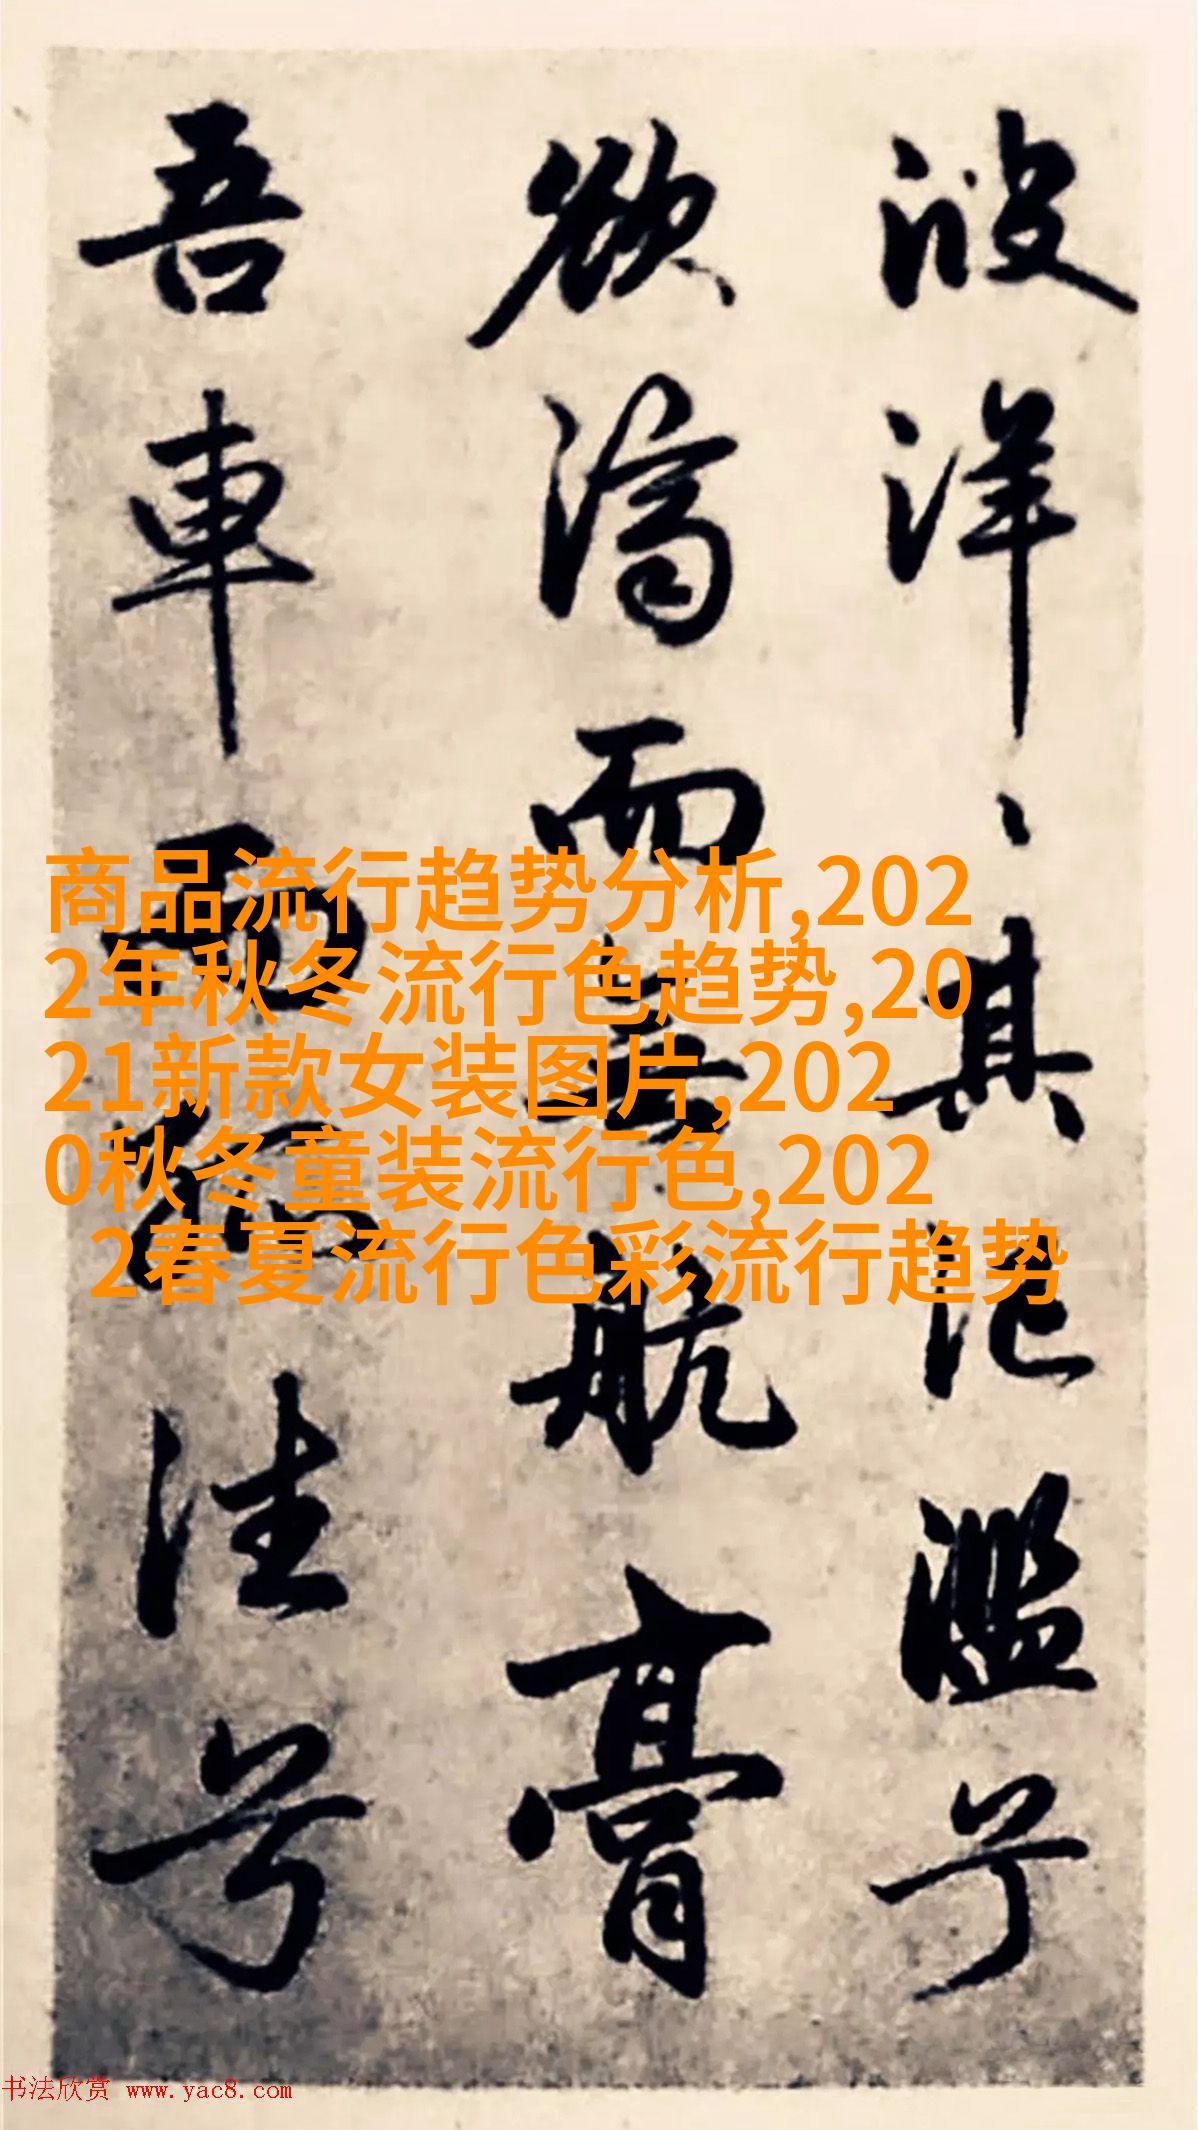 波洋々其氾濫兮
欲濟而無航膏
吾車而往兮
商品流行趋势分析,202
2年秋冬流行色趋势,20
21新款女装图片,202
0秋冬童装流行色,202
2春夏流行色彩流行趋势
书法欣赏 www.yac8.com